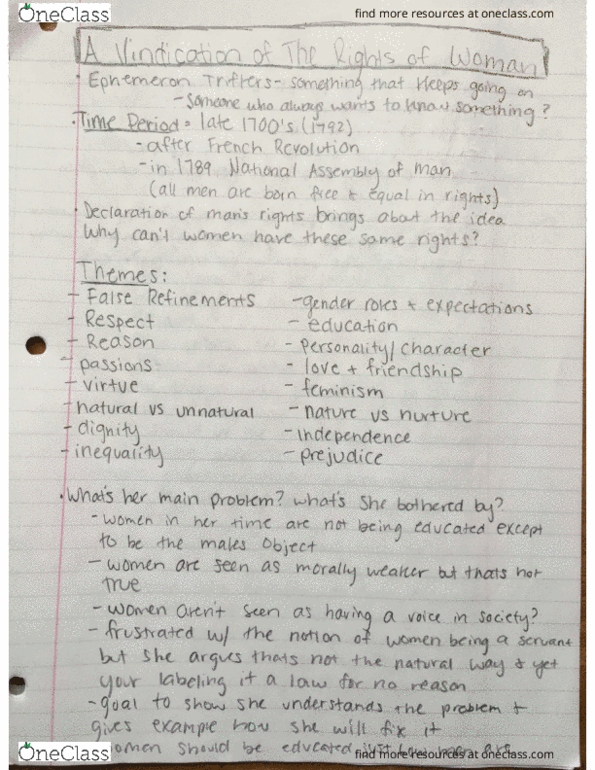 OneClass
find more resources at oneclass.com
A Vindication of The Rights of Woman
· Ephemeron Triflers - something that keeps going on
- Someone who always wants to know something?
· Time Period = late 1700's (1792)
- after French Revolution
- in 1789 National Assembly of man
(all men are born free + equal in rights)
· Declaration of man's rights brings about the idea
why can't women have these same rights?
Themes:
- False Refinements - gender roles + expectations
- Respect - education
- Reason - personality/character
- passions - love + friendship
- virtue - feminism
- natural vs unnatural - nature vs nurture
- dignity - independence
- inequality - prejudice
· What's her main problem? what's she bothered by?
- women in her time are not being educated except
to be the males object
- women are seen as morally weaker but thats not
true
- women aren't seen as having a voice in society?
- frustrated w/ the notion of women being a servant
but she argues thats not the natural way & yet
your labeling it a law for no reason
- goal to show she understands the problem +
gives example how she will fix it
women should be educated
OneClass
find more resources at oneclass.com